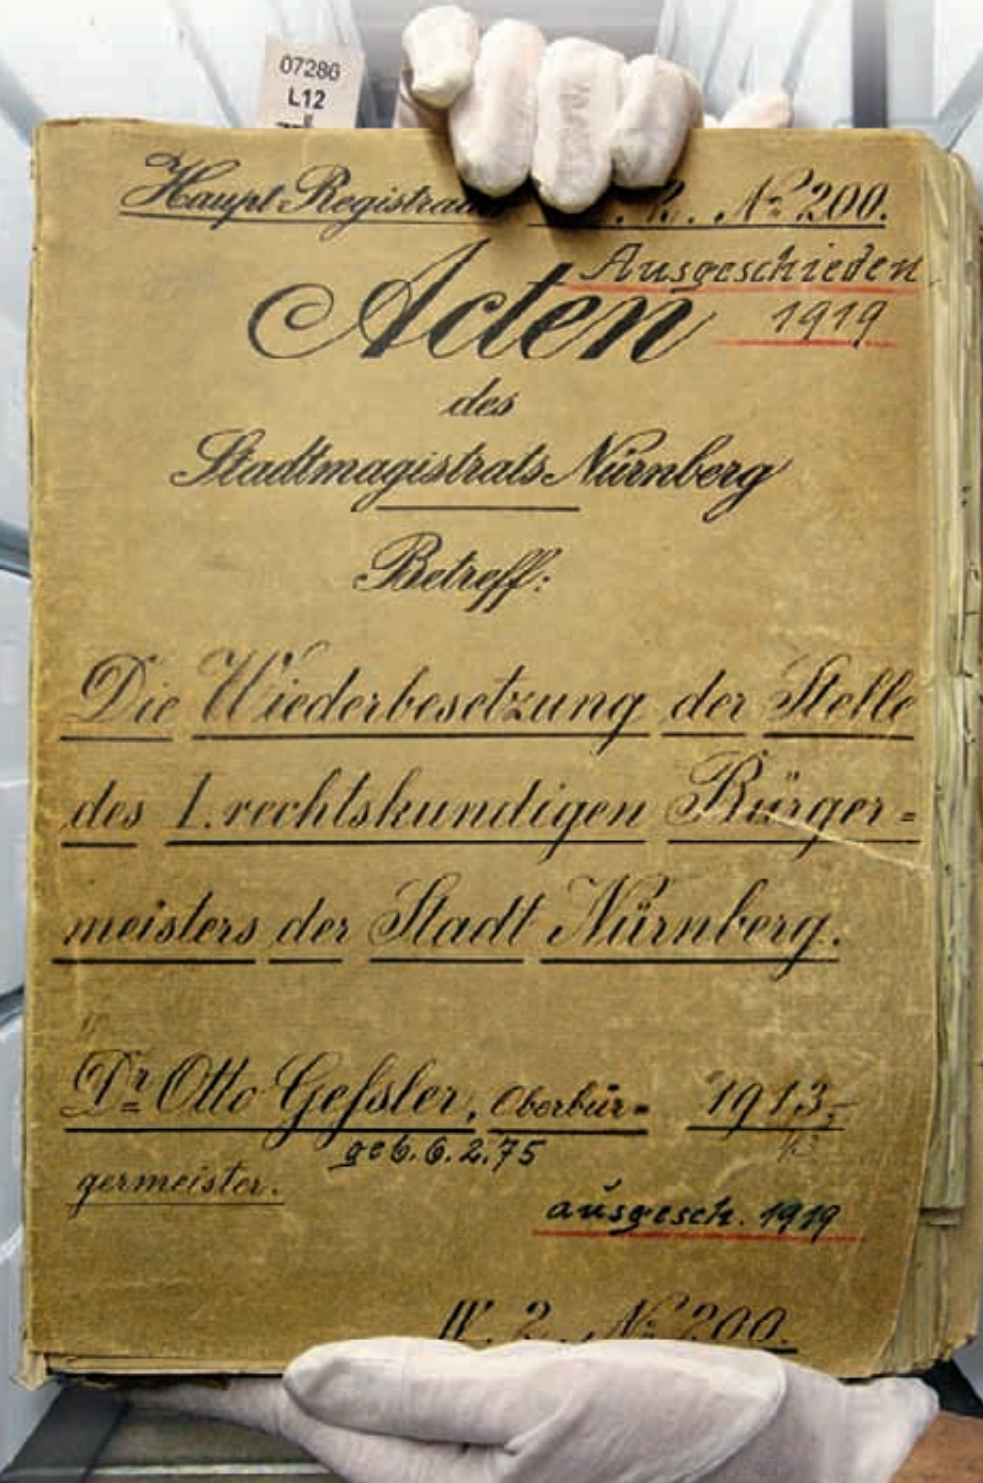 07286
L12
Haupt-Registra
№ 200.
Ausgeschieden
1919
Acten
des
Stadtmagistrats Nürnberg
Betreff:
Die Wiederbesetzung der Stelle
des I. rechtskundigen Bürger=
meisters der Stadt Nürnberg.
Dr Otto Geſsler, Oberbür= 1913-
geb. 6. 2. 75
germeister.
ausgesch. 1919
№ 200.